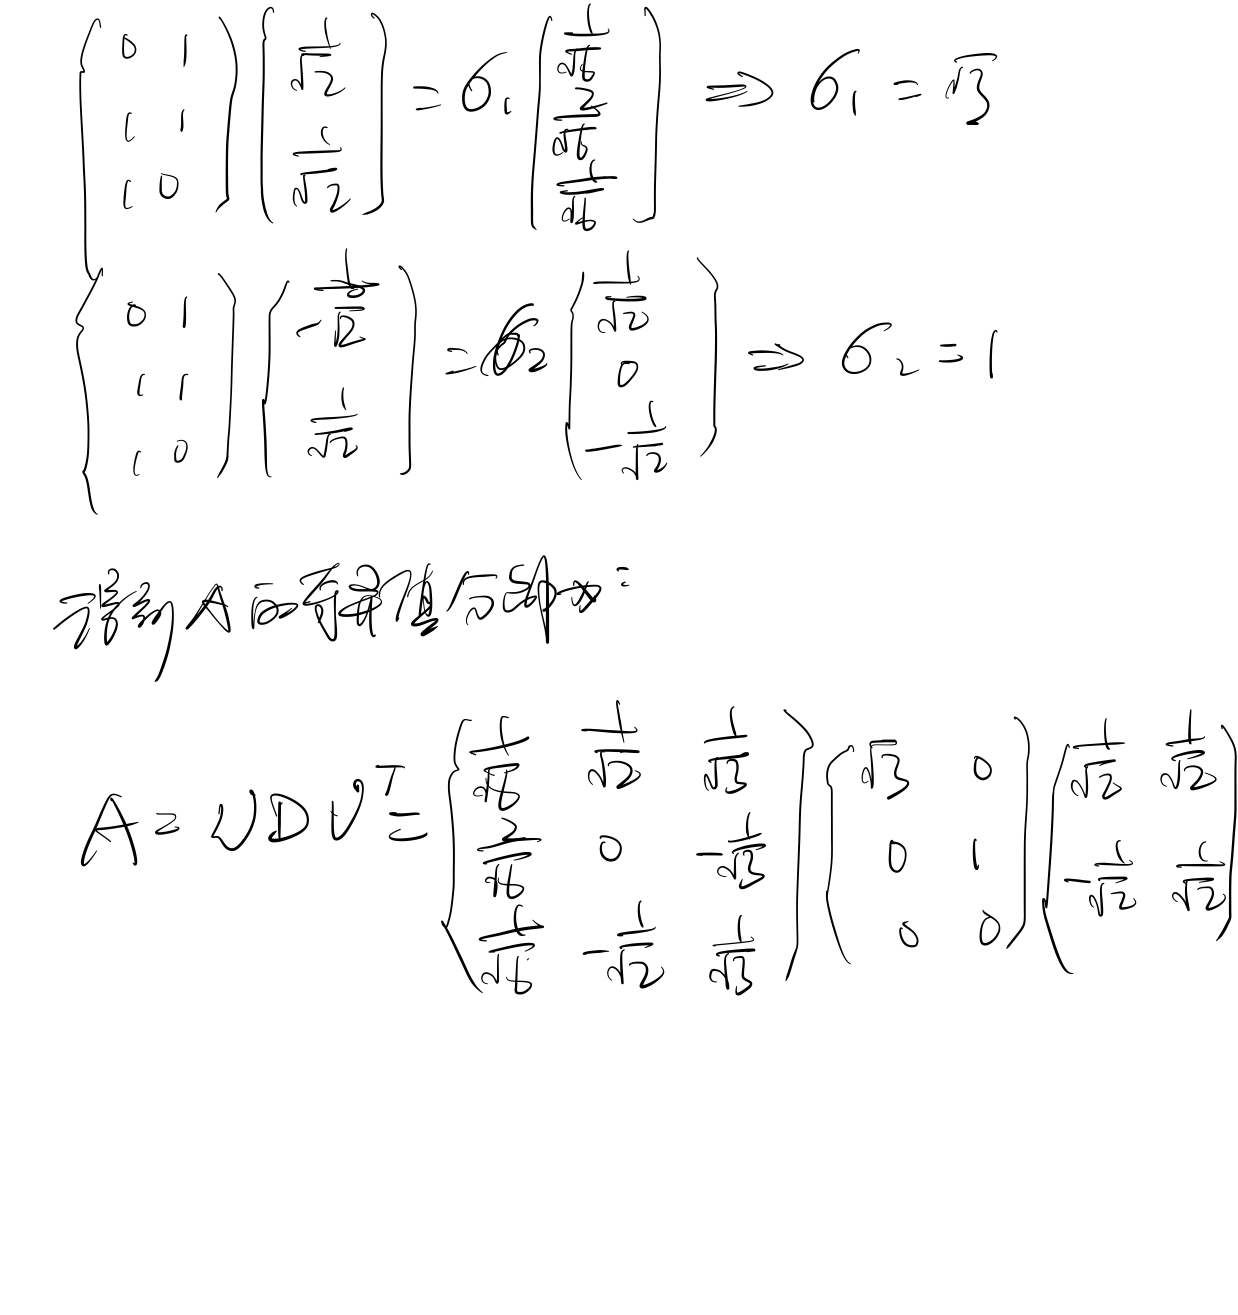 $\begin{pmatrix} 0 & 1 \\ 1 & 1 \\ 1 & 0 \end{pmatrix} \begin{pmatrix} \frac{1}{\sqrt{2}} \\ \frac{1}{\sqrt{2}} \end{pmatrix} = \sigma_1 \begin{pmatrix} \frac{1}{\sqrt{6}} \\ \frac{2}{\sqrt{6}} \\ \frac{1}{\sqrt{6}} \end{pmatrix} \Rightarrow \sigma_1 = \sqrt{3}$
$\begin{pmatrix} 0 & 1 \\ 1 & 1 \\ 1 & 0 \end{pmatrix} \begin{pmatrix} -\frac{1}{\sqrt{2}} \\ \frac{1}{\sqrt{2}} \end{pmatrix} = \sigma_2 \begin{pmatrix} \frac{1}{\sqrt{2}} \\ 0 \\ -\frac{1}{\sqrt{2}} \end{pmatrix} \Rightarrow \sigma_2 = 1$
得到A的奇异值分解为:
$A = UDV^T = \begin{pmatrix} \frac{1}{\sqrt{6}} & \frac{1}{\sqrt{2}} & \frac{1}{\sqrt{3}} \\ \frac{2}{\sqrt{6}} & 0 & -\frac{1}{\sqrt{3}} \\ \frac{1}{\sqrt{6}} & -\frac{1}{\sqrt{2}} & \frac{1}{\sqrt{3}} \end{pmatrix} \begin{pmatrix} \sqrt{3} & 0 \\ 0 & 1 \\ 0 & 0 \end{pmatrix} \begin{pmatrix} \frac{1}{\sqrt{2}} & \frac{1}{\sqrt{2}} \\ -\frac{1}{\sqrt{2}} & \frac{1}{\sqrt{2}} \end{pmatrix}$